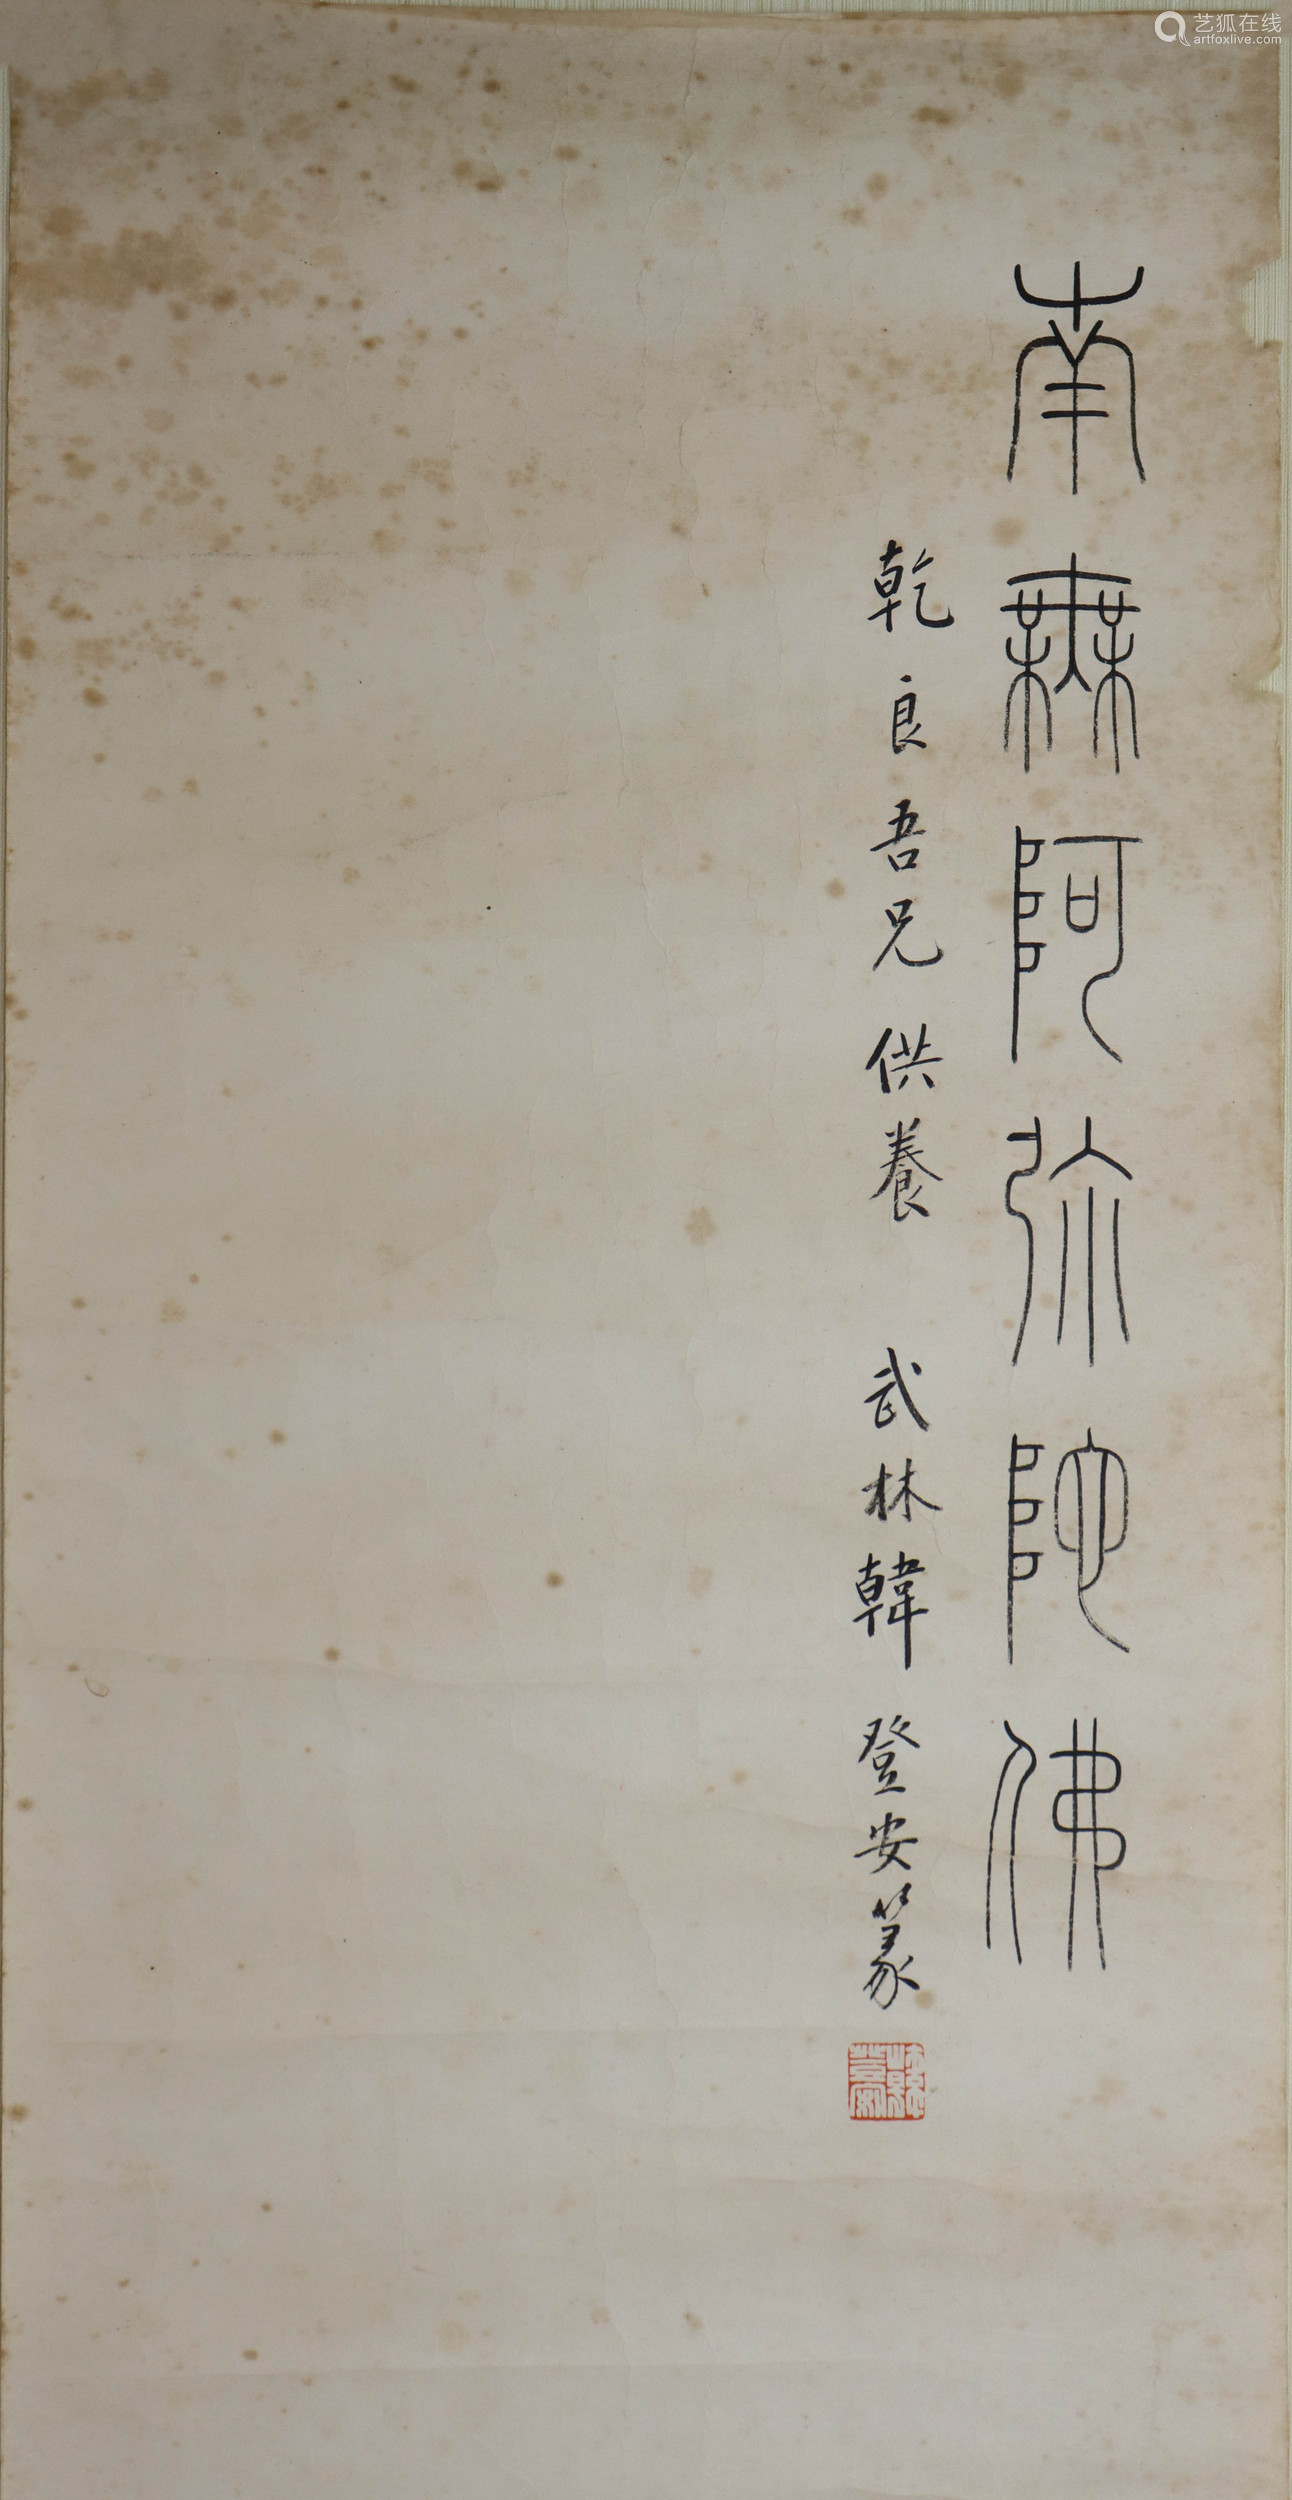 南無阿弥陀佛
乾良吾兄供養 武林韓登安篆
韓登安
艺狐在线
artfoxlive.com